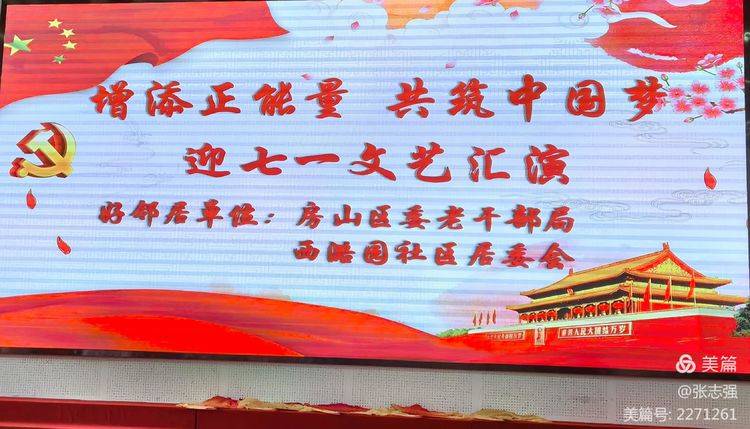 增添正能量 共筑中国梦
迎七一文艺汇演
好邻居单位：房山区委老干部局
西潞园社区居委会
世界人民大团结万岁
美篇
@张志强
美篇号: 2271261